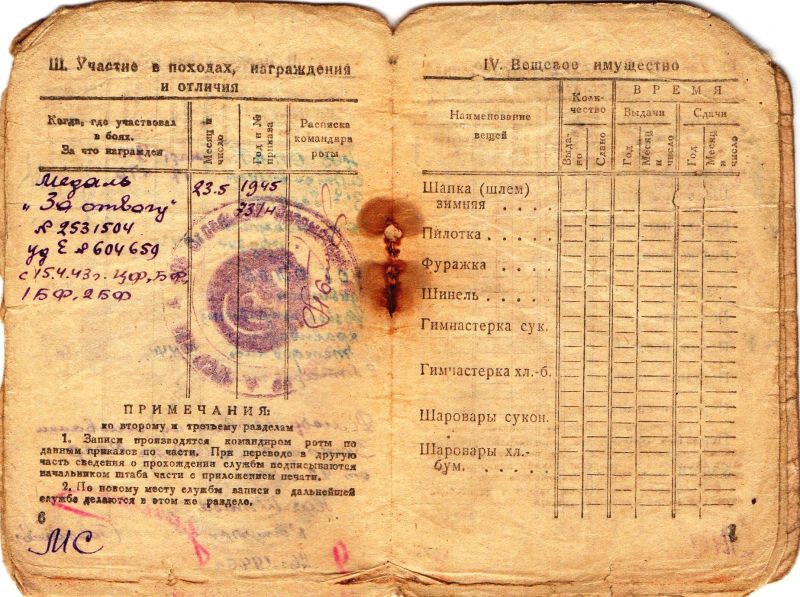 III. Участие в походах, награждения
и отличия
Когда, где участвовал
в боях.
За что награжден
Месяц и
число
Год и №
приказа
Расписка
командира
роты
Медаль
"За отвагу"
№ 2531504
уд Е № 604659
с 15.4.43г. ЦФ, БФ,
1БФ, 2БФ
23.5
1945
73/н
ПРИМЕЧАНИЯ:
ко второму и третьему разделам
1. Записи производятся командиром роты по
данным приказов по части. При переводе в другую
часть сведения о прохождении службы подписываются
начальником штаба части с приложением печати.
2. По новому месту службы записи о дальнейшей
службе делаются в этом же разделе.
6
МС
IV. Вещевое имущество
Наименование
вещей
Коли-
чество
ВРЕМЯ
Выдачи
Сдачи
Выда-
но
Сдано
Год
Месяц
и число
Год
Месяц
и число
Шапка (шлем)
зимняя . . . .
Пилотка . . . . .
Фуражка . . . .
Шинель . . . . .
Гимнастерка сук.
Гимчастерка хл.-б.
Шаровары сукон.
Шаровары хл.-
бум. . . . . .